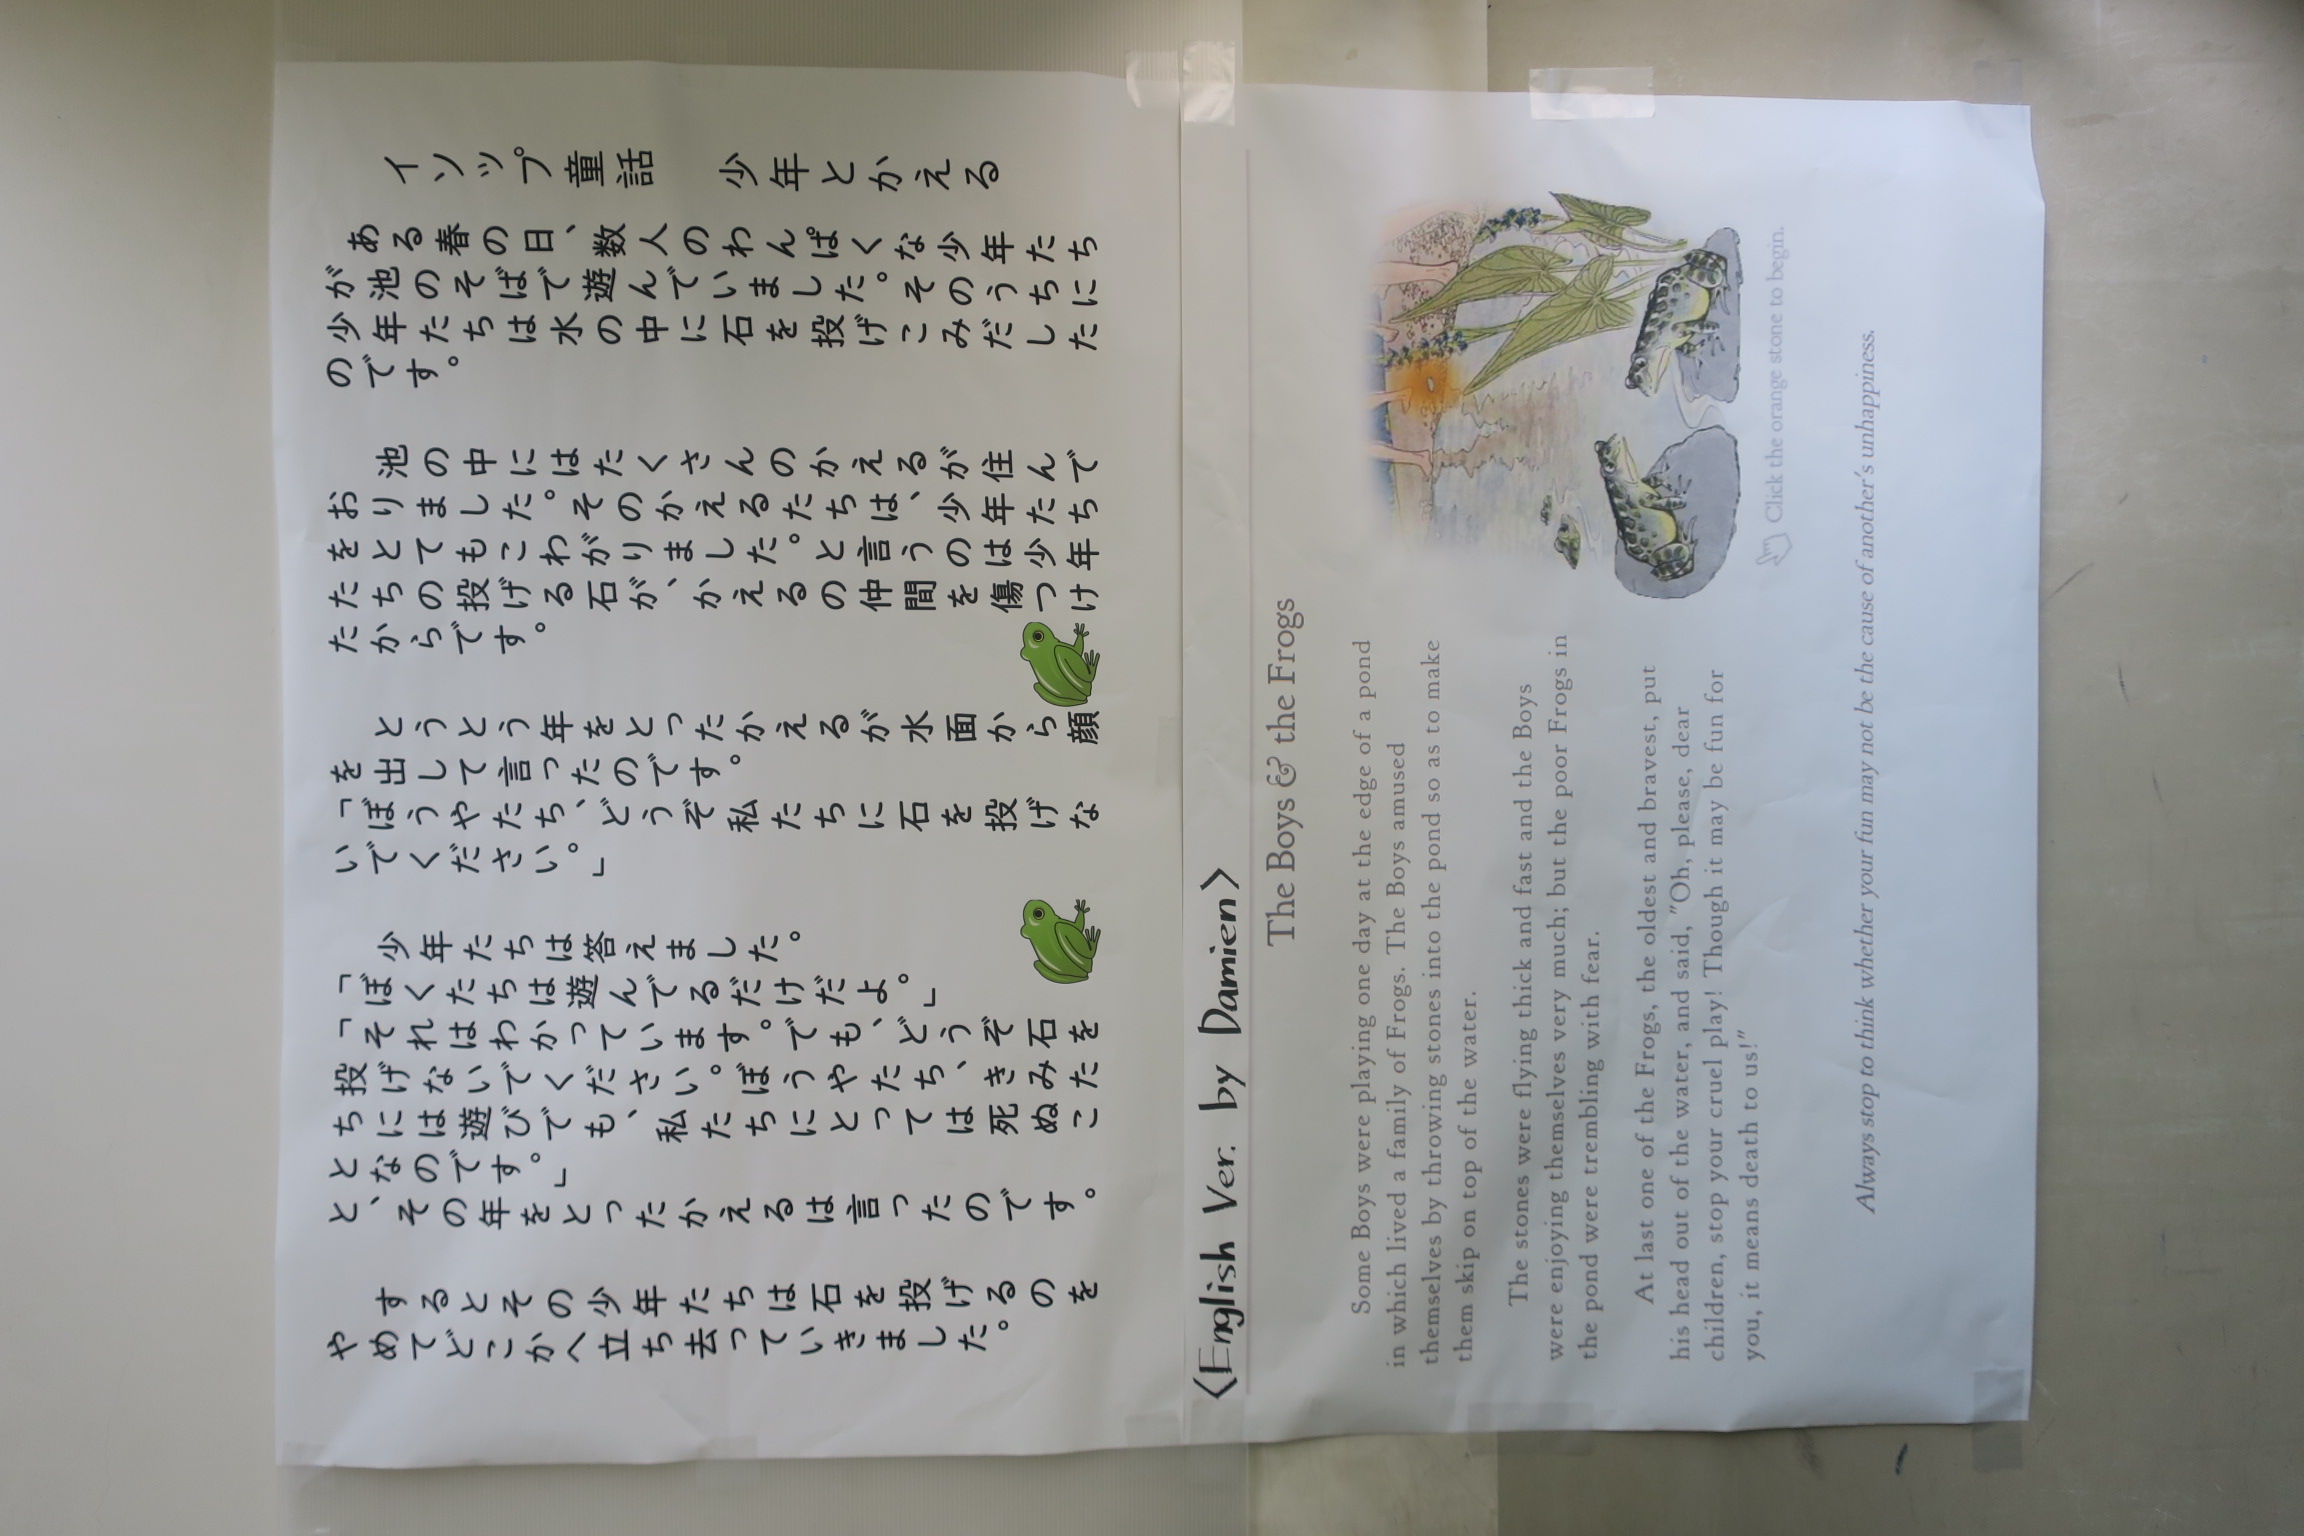 イソップ童話　少年とかえる
ある春の日、数人のわんぱくな少年たち
が池のそばで遊んでいました。そのうちに
の少年たちは水の中に石を投げこみだした
のです。
池の中にはたくさんのかえるが住んで
おりました。そのかえるたちは、少年たち
をとてもこわがりました。と言うのは少年
たちの投げる石が、かえるの仲間を傷つけ
たからです。
とうとう年をとったかえるが水面から顔
を出して言ったのです。
「ぼうやたち、どうぞ私たちに石を投げな
いでください。」
少年たちは答えました。
「ぼくたちは遊んでるだけだよ。」
「それはわかっています。でも、どうぞ石を
投げないでください。ぼうやたち、きみた
ちには遊びでも、私たちにとっては死ぬこ
となのです。」
と、その年をとったかえるは言ったのです。
するとその少年たちは石を投げるのを
やめてどこかへ立ち去っていきました。
<English Ver. by Damien>
The Boys & the Frogs
Some Boys were playing one day at the edge of a pond
in which lived a family of Frogs. The Boys amused
themselves by throwing stones into the pond so as to make
them skip on top of the water.
The stones were flying thick and fast and the Boys
were enjoying themselves very much; but the poor Frogs in
the pond were trembling with fear.
At last one of the Frogs, the oldest and bravest, put
his head out of the water, and said, "Oh, please, dear
children, stop your cruel play! Though it may be fun for
you, it means death to us!"
Click the orange stone to begin.
Always stop to think whether your fun may not be the cause of another's unhappiness.